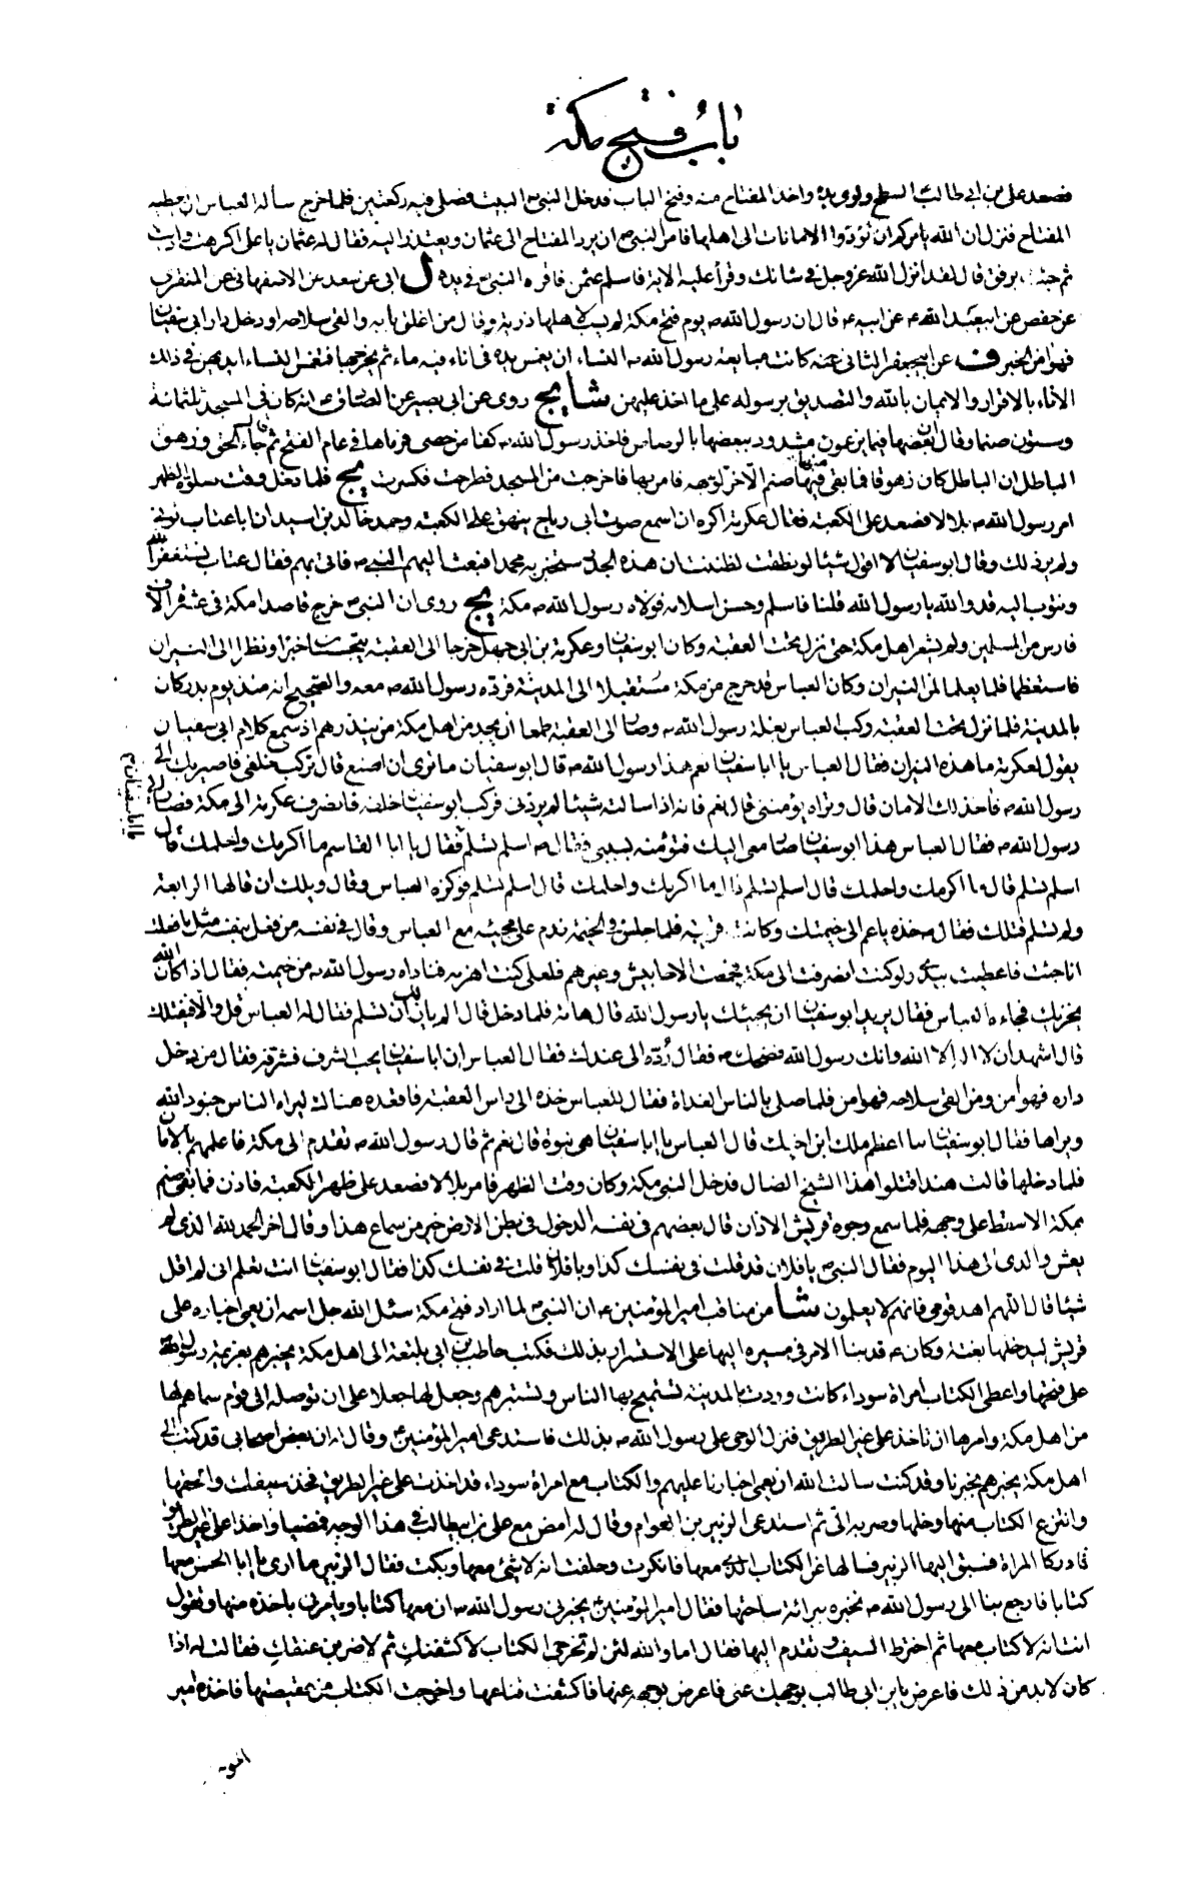 باب فتح مكة
فصعد على بن ابي طالب السطح ولوى يده واخذ المفتاح منه وفتح الباب فدخل النبي ص البيت فصلى فيه ركعتين فلما خرج سأله العباس ان يعطيه
المفتاح فنزل ان الله يامركم ان تؤدوا الامانات الى اهلها فامر النبي ص ان يرد المفتاح الى عثمان ويعتذر اليه فقال له عثمان يا على اكرهت واذيت
ثم جئت برفق قال لقد انزل الله عز وجل في شانك وقرأ عليه الاية فاسلم عثمن فاقره النبي ص في يده ل ابي عن سعد عن الاصفهاني عن المنقرى
عن حفص عن ابيعبد الله ع عن ابيه ع قال ان رسول الله ص يوم فتح مكة لم يسب لاهلها ذرية وقال من اغلق بابه والقى سلاحه او دخل دار ابي سفيان
فهو امن الخبر ف عن ابيجعفر الثاني ع انه كانت مبايعة رسول الله ص النساء ان يغمس يده في اناء فيه ماء ثم يخرجها فتغمس النساء ايديهن في ذلك
الاناء بالاقرار والايمان بالله والتصديق برسوله على ما اخذ عليهن شا يج روى عن ابي بصير عن الصادق ع انه كان في المسجد ثلثمائة
وستون صنما وقال بعضها فيما يزعمون مشدود ببعضها بالرصاص فاخذ رسول الله ص كفا من حصى فرماها في عام الفتح ثم قال جاء الحق وزهق
الباطل ان الباطل كان زهوقا فما بقي فيها صنم الا خر لوجهه فامر بها فاخرجت من المسجد فطرحت فكسرت يج فلما دخل وقت صلوة الظهر
امر رسول الله ص بلالا فصعد على الكعبة فقال عكرمة اكره ان اسمع صوت ابي رباح ينهق على الكعبة وحمد خالد بن اسيد ان اباعتاب توفى
ولم ير ذلك وقال ابو سفيان لا اقول شيئا لو نطقت لظننت ان هذه الجدر ستخبر به محمدا فبعث اليهم النبي ص فاتى بهم فقال عتاب نستغفر الله
ونتوب اليه قد والله يا رسول الله قلنا فاسلم وحسن اسلامه فولاه رسول الله ص مكة يج روى ان النبي ص خرج قاصدا مكة في عشرة الاف
فارس من المسلمين ولم يشعر اهل مكة حتى نزل تحت العقبة وكان ابو سفيان وعكرمة بن ابي جهل خرجا الى العقبة يتجسسان خبرا ونظرا الى النيران
فاستعظما فلم يعلما لمن النيران وكان العباس قد خرج من مكة مستقبلا الى المدينة فرده رسول الله ص معه والصحيح انه منذ يوم بدر كان
بالمدينة فلما نزل تحت العقبة ركب العباس بغلة رسول الله ص وصار الى العقبة طمعا ان يجد من اهل مكة من ينذرهم اذ سمع كلام ابي سفيان
يقول لعكرمة ما هذه النيران فقال العباس يا ابا سفيان نعم هذا رسول الله ص قال ابو سفيان ما ترى ان اصنع قال تركب خلفي فاصير بك الى
رسول الله ص فاخذ لك الامان قال وتراه يؤمنني قال نعم فانه اذا سالته شيئا لم يردني فركب ابو سفيان خلفه فانصرف عكرمة الى مكة فصار الى
رسول الله ص فقال العباس هذا ابو سفيان صار معي اليك فتؤمنه بسببي فقال ص اسلم تسلم فقال يا ابا القاسم ما اكرمك واحلمك قال
اسلم تسلم قال ما اكرمك واحلمك قال اسلم تسلم قال ما اكرمك واحلمك قال اسلم تسلم فوكزه العباس وقال ويلك ان قالها الرابعة
ولم تسلم قتلك فقال ص خذه يا عم الى خيمتك وكانت قريبة فلما جلس في الخيمة ندم على مجيئه مع العباس وقال في نفسه من فعل بنفسه مثل ما فعلت
انا جئت فاعطيت بيدي ولو كنت انصرفت الى مكة فجمعت الاحابيش وغيرهم فلعلي كنت اهزمه فناداه رسول الله ص من خيمته فقال اذا كان الله
يخزيك فجاءه العباس فقال يريد ابو سفيان ان يجيئك يا رسول الله قال هاته فلما دخل قال الم يان لك ان تسلم فقال له العباس قل والا فيقتلك
قال اشهد ان لا اله الا الله وانك رسول الله فضحك ص فقال رده الى عندك فقال العباس ان ابا سفيان يحب الشرف فشرفه فقال من دخل
داره فهو امن ومن القى سلاحه فهو امن فلما صلى بالناس الغداة فقال للعباس خذه الى راس العقبة فاقعده هناك ليراه الناس جنود الله
ويراها فقال ابو سفيان ما اعظم ملك ابن اخيك قال العباس يا ابا سفيان هي نبوة قال نعم ثم قال رسول الله ص تقدم الى مكة فاعلمهم بالامان
فلما دخلها قالت هند اقتلوا هذا الشيخ الضال فدخل النبي مكة وكان وقت الظهر فامر بلالا فصعد على ظهر الكعبة فاذن فما بقي صنم
بمكة الا سقط على وجهه فلما سمع وجوه قريش الاذان قال بعضهم في نفسه الدخول في بطن الارض خير من سماع هذا وقال اخر الحمد لله الذي لم
يعش والدي الى هذا اليوم فقال النبي ص يا فلان قد قلت في نفسك كذا ويا فلان قلت في نفسك كذا فقال ابو سفيان انت تعلم اني لم اقل
شيئا قال اللهم اهد قومي فانهم لا يعلمون شا من مناقب امير المؤمنين ع ان النبي ص لما اراد فتح مكة سئل الله جل اسمه ان يعمي اخباره على
قريش ليدخلها بغتة وكان ع قد بنا الامر في مسيره اليها على الاستسرار بذلك فكتب حاطب بن ابي بلتعة الى اهل مكة يخبرهم بعزيمة رسول الله ص
على فتحها واعطى الكتاب امراة سوداء كانت وردت المدينة تستميح بها الناس وتستبرهم وجعل لها جعلا على ان توصله الى قوم سماهم لها
من اهل مكة وامرها ان تاخذ على غير الطريق فنزل الوحي على رسول الله ص بذلك فاستدعى امير المؤمنين ع وقال له ان بعض اصحابي قد كتب الى
اهل مكة يخبرهم بخبرنا وقد كنت سالت الله ان يعمي اخبارنا عليهم والكتاب مع امراة سوداء قد اخذت على غير الطريق فخذ سيفك والحقها
وانتزع الكتاب منها وخلها وصر به الي ثم استدعى الزبير بن العوام وقال له امض مع على بن ابيطالب في هذا الوجه فمضيا واخذا على غير الطريق
فادركا المراة فسبق اليها الزبير فسالها عن الكتاب الذي معها فانكرت وحلفت انه لا شئ معها وبكت فقال الزبير ما ارى يا ابا الحسن معها
كتابا فارجع بنا الى رسول الله ص نخبره ببرائة ساحتها فقال امير المؤمنين ع يخبرني رسول الله ص ان معها كتابا ويامرني باخذه منها وتقول
انت انه لا كتاب معها ثم اخترط السيف وتقدم اليها فقال اما والله لئن لم تخرجي الكتاب لاكشفنك ثم لاضربن عنقك فقالت له اذا
كان لا بد من ذلك فاعرض يا بن ابي طالب بوجهك عني فاعرض بوجهه عنها فكشفت قناعها واخرجت الكتاب من عقيصتها فاخذه امير